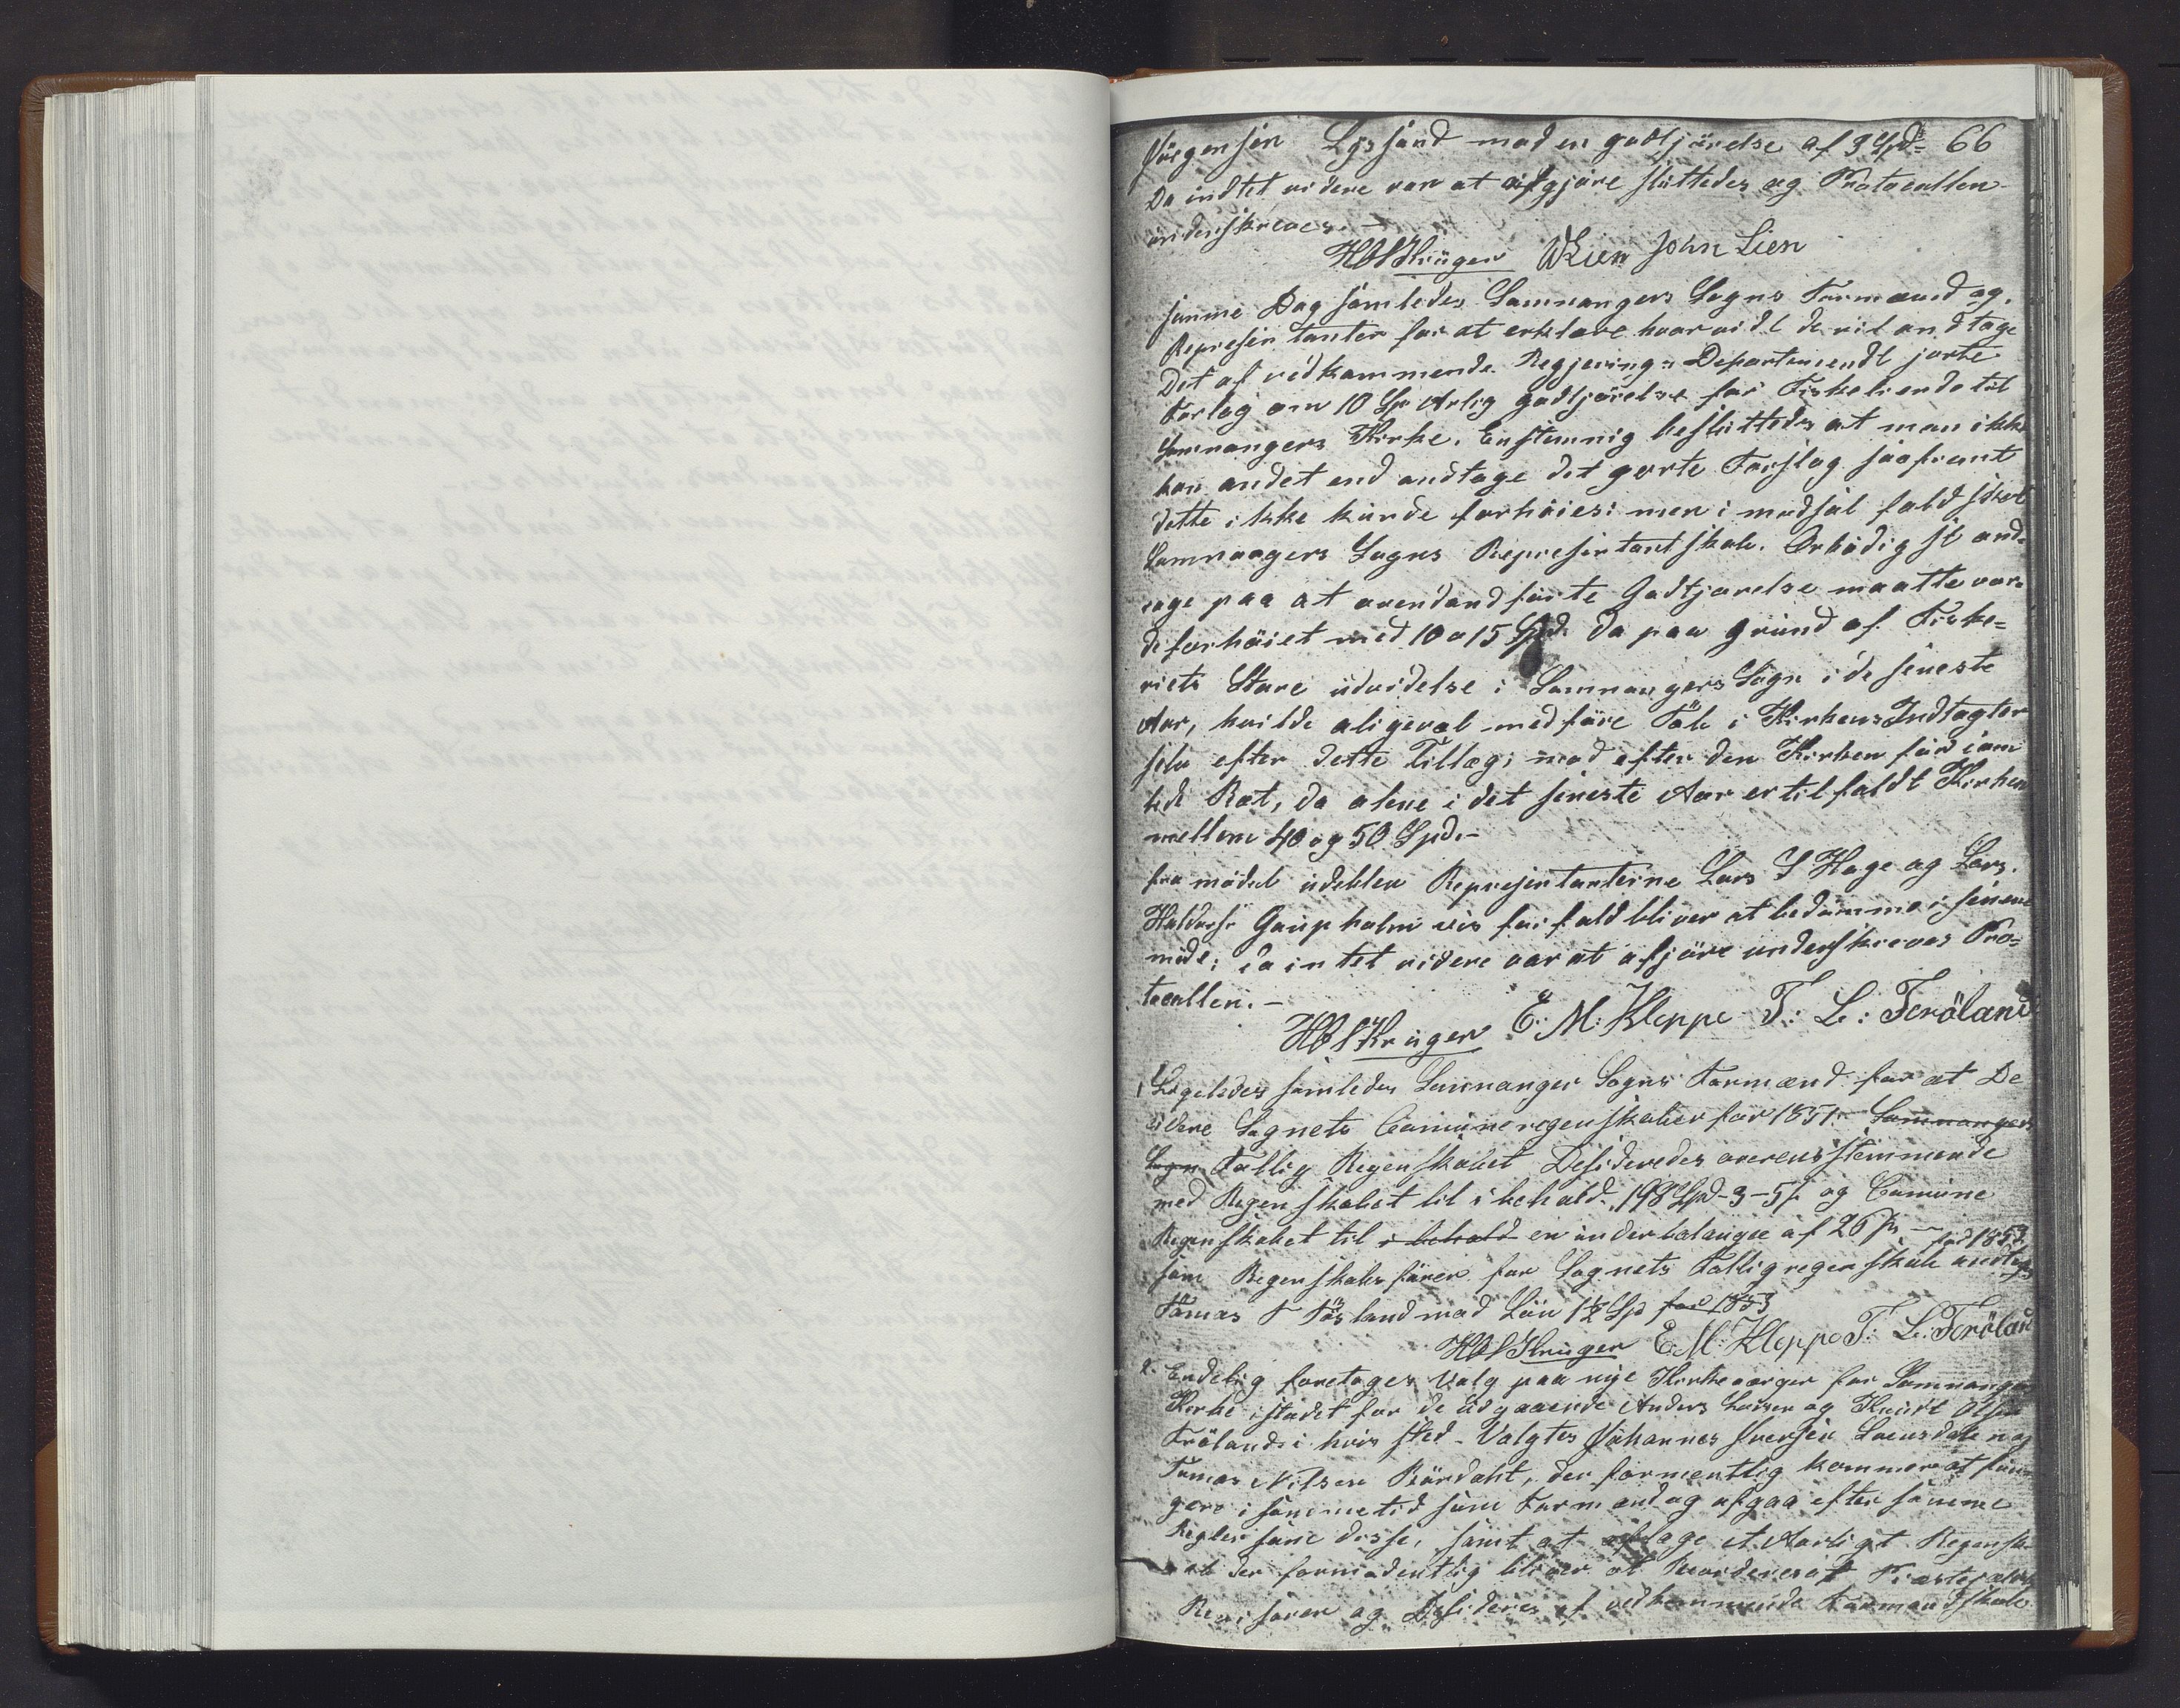 Jörgensen Lÿssand mod en godtjörelse af 3 Spd= 66
Da indtet videre var at afgjöre slüttedes og Protocollen
ünderskreves.
HOSKrüger WLien John Lien
samme Dag samledes Samnangers Sogns Formænd og
Represintanter for at erklære hvorvidt de vil andtage
Det af vedkommende Regjerings Departementdt jorte
Forlag om 10 Sp Arlig godtjörelse for Fisketiende til
Samnangers Kirke. Enstemnig beslüttedes at man ikke
kan andet end andtage det gjorte Forslag saafremt
dette ikke künde forhöies: men i modsat fald skal
Samnangers Sogns Represintantskab. Erbödig st and=
rage paa at ovendandförte Godtjörelse maatte vor=
de forhöiet med 10 a 15 Spd. da paa Gründ af Fiske=
riets Store üdvidelse i Samnangers Sogn i de seneste
Aar, hvilde aligevel medföre Tab i Kirkens Indtægter
selv efter dette Tillæg; mod efter den Kirken
Ret, da alene i det seneste Aar er tilfaldt Kirken
mellem 40 og 50 Spd.-
fra mödet üdeblev Represintanterne Lars S Hage og Lars
Haldorsr Gaupholm vis forfald bliver at bedömme i senere
möde; da intet videre var at afjöre underskreves Pro=
tocollen.-
HOSKrüger E: M: Kleppe T: L: Teröland
1 Ligeledes samledes Samnanger Sogns Formænd for at De
sidere Sognets Comüneregenskaber for 1851. Samnangers
Sogn Fattig Regenskabet Desideredes overensstemmende
med Regenskabet til i behold. 198 Spd-3-5s og Comüne
Regenskabet til i behold en ünderbalange af 26 s
som Regenskabsförer for Sognets Fattigregenskab andtoges
Tömas T Tösland mod Lön 1½ Sp for 1853
HOSKrüger E. M: Kleppe T: L: Terölan
2. Endelig foretoges Valg paa nye Kirkeværger for Samnanger
Kirke istedet for de üdgaaende Anders Larsen og Knüdt Olsen
Trölands i hvis sted Valgtes Johannes Iversen
Tomas Nilsen Bördahl, der formentlig kommer at fun
gere i sammetid som Formænd og afgaa efter samme
Regler som disse, samt at aflæge et Aarligt Regensk
ab der formodentlig bliver at
Revisorer og Desideres af vedkommende Formandskab